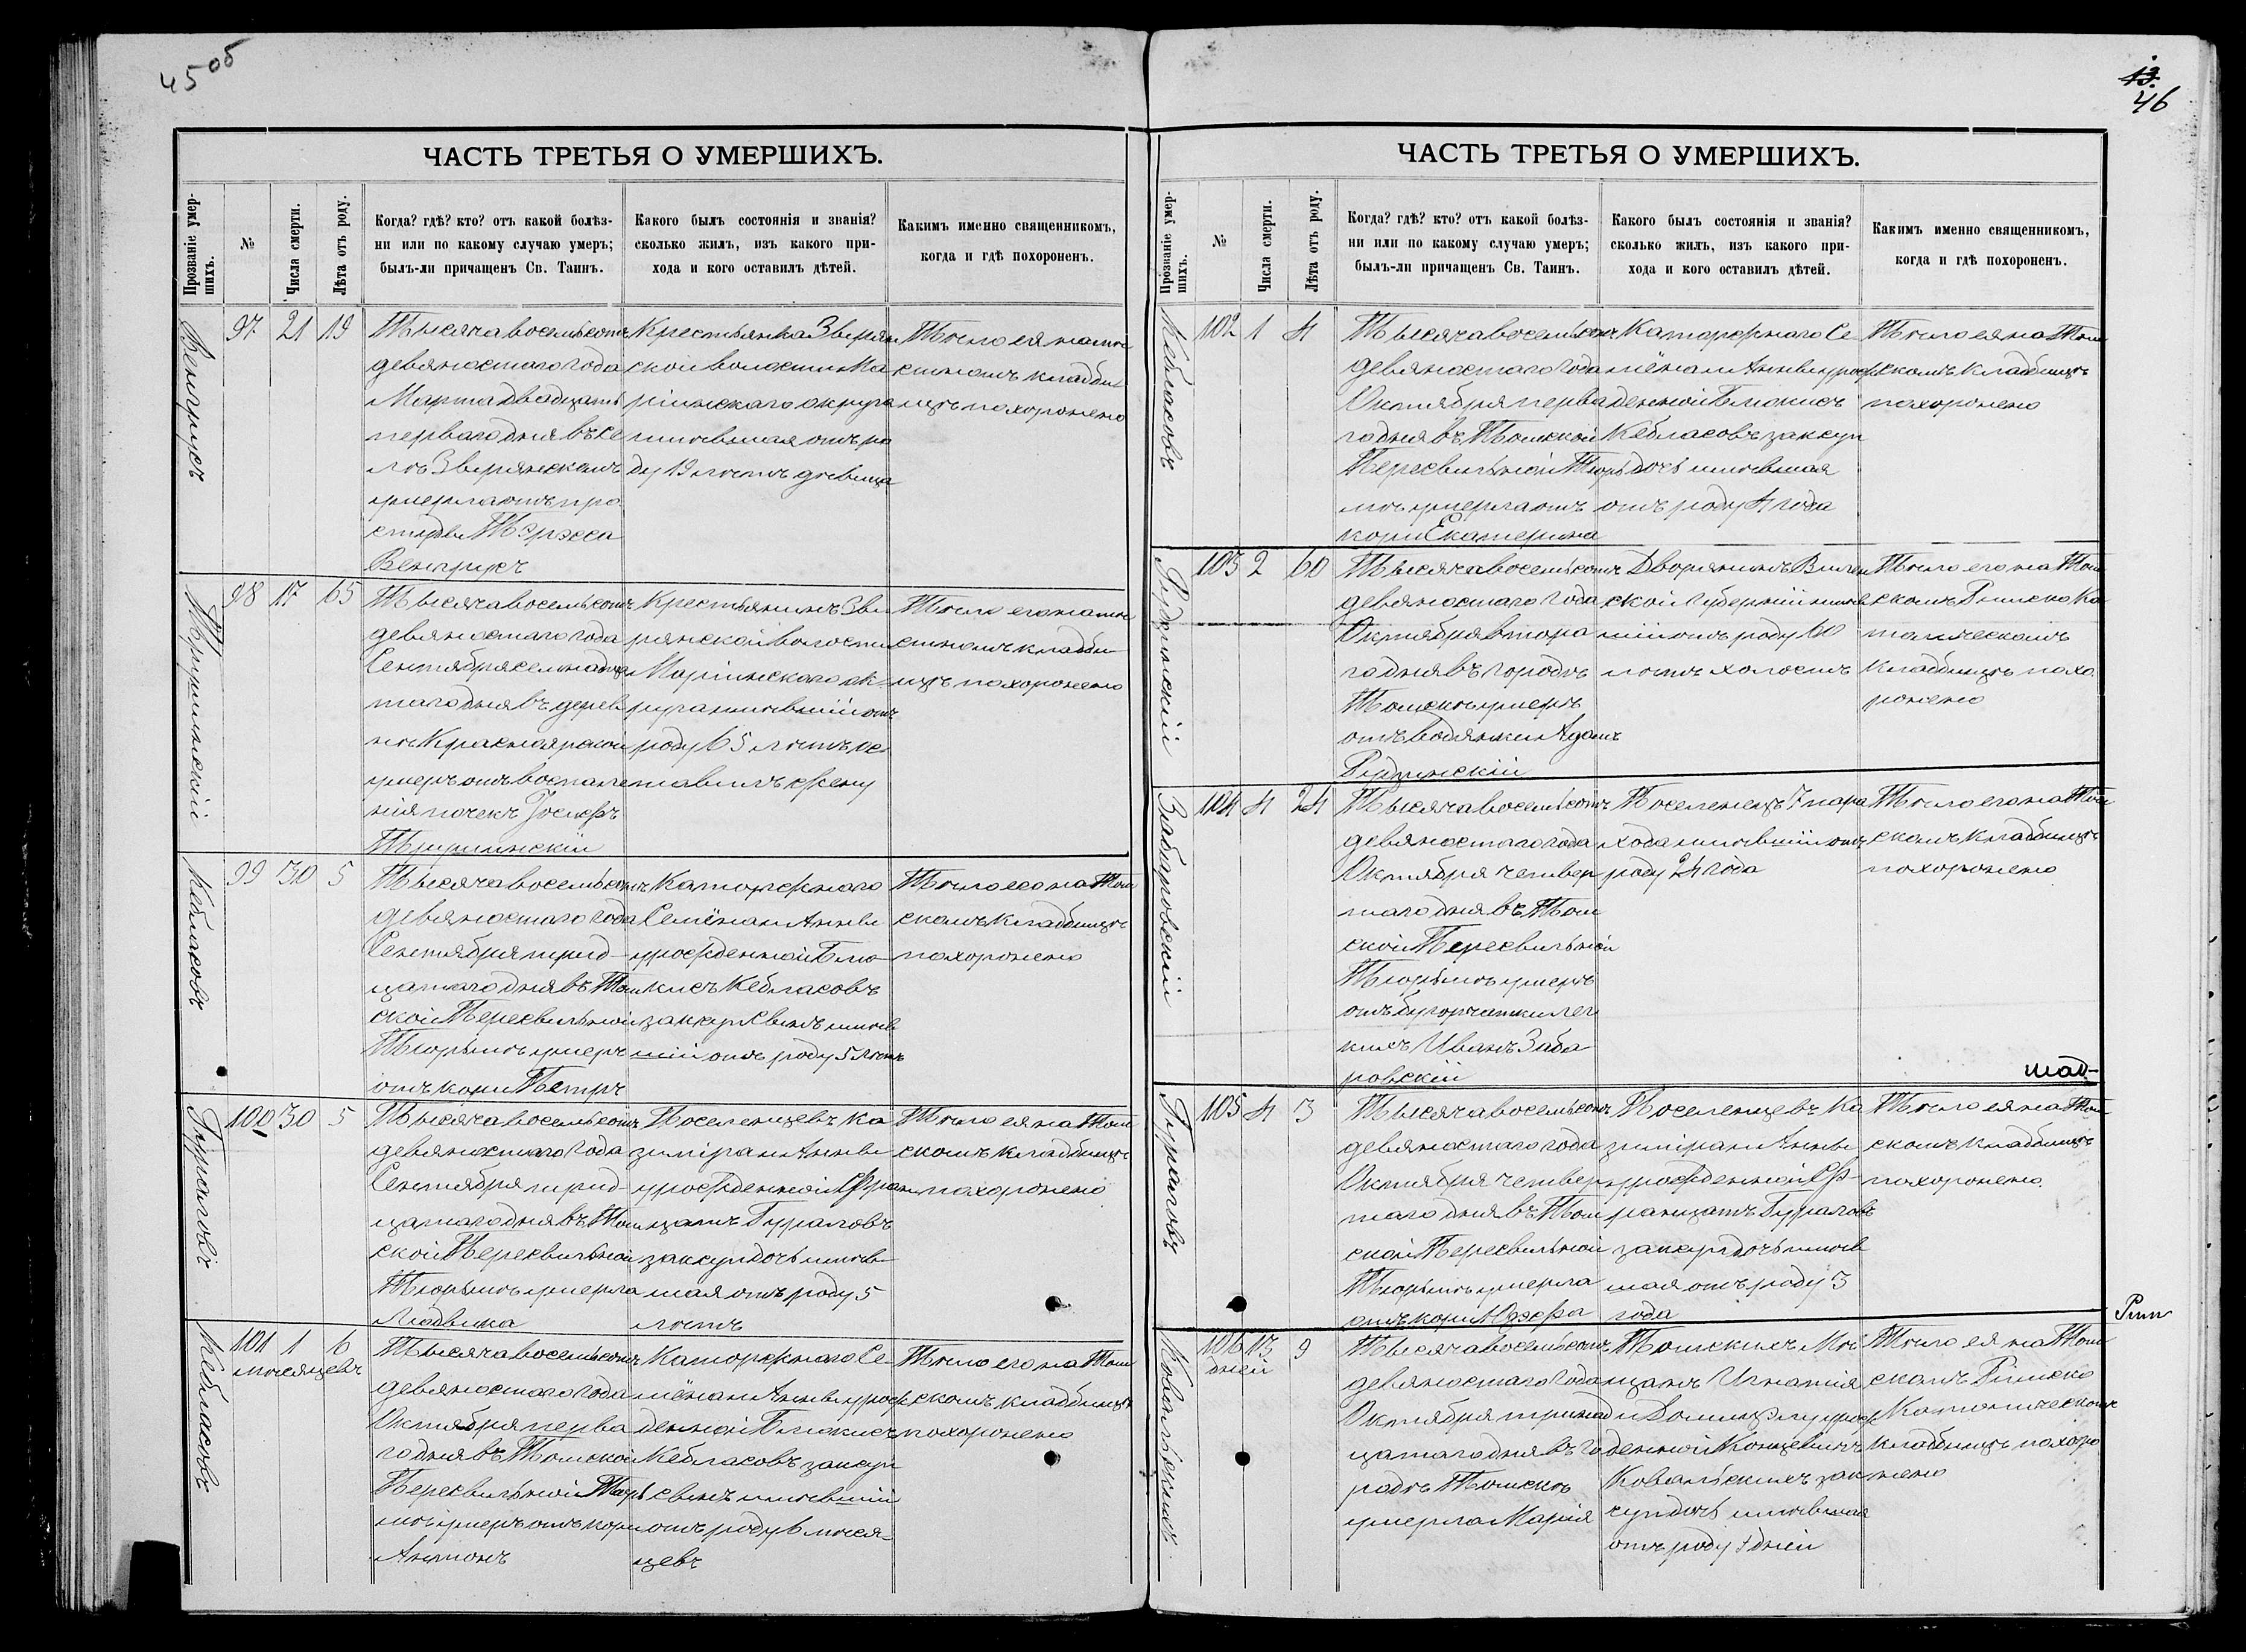 45 об
ЧАСТЬ ТРЕТЬЯ О УМЕРШИХЪ.
Прозваніе умер-
шихъ.
№
Числа смерти.
Лѣта отъ роду.
Когда? гдѣ? кто? отъ какой болѣз-
ни или по какому случаю умеръ;
былъ-ли причащенъ Св. Таинъ.
Какого былъ состоянія и званія?
сколько жилъ, изъ какого при-
хода и кого оставилъ дѣтей.
Какимъ именно священникомъ,
когда и гдѣ похороненъ.
97 21 19
Тысяча восемьсотъ
девяностаго года
Марта двадцать
перваго дня въ се
лѣ Зверянскомъ
умерла отъ про
студы Тэрэса
Венгрисъ
Крестьянка Зверян
ской волости Ма
ріинскаго округа
имевшая отъ ро
ду 19 летъ девица
Тѣло ея на мѣ
стномъ кладби
щѣ похоронено
98 17 65
Тысяча восемьсотъ
девяностаго года
Сентября семнадца
таго дня въ дерев
нѣ Красноярской
умеръ отъ воспале
нія почекъ Іосифъ
Крестьянинъ Зве
рянской волости
Маріинскаго ок
руга имѣвшій отъ
роду 65 летъ ос
тавилъ жену
Тѣло его на мѣ
стномъ кладби
щѣ похоронено
Кебласовъ
99 30 5
Тысяча восемьсотъ
девяностаго года
Сентября трид-
цатаго дня въ Том
ской Пересыльной
Тюрьмѣ умеръ
отъ кори Петръ
Каторжнаго
Семёна и Анны
урожденной Блю-
кисъ Кебласовъ
зак суп сынъ имѣв
шій отъ роду 5 летъ
Тѣло его на Том
скомъ кладбищѣ
похоронено
100 30 5
Тысяча восемьсотъ
девяностаго года
Сентября трид-
цатаго дня въ Том
ской Пересыльной
Тюрьмѣ умерла
Людвика
Поселенцевъ Ка
зиміра и Анны
урожденной Фран
цатъ Гураловъ
зак суп дочь имѣв
шая отъ роду 5
летъ
Тѣло ея на Том
скомъ кладбищѣ
похоронено
Кебласовъ
101 1 6
мѣсяцевъ
Тысяча восемьсотъ
девяностаго года
Октября перва
го дня въ Томской
Пересыльной Тюрь
мѣ умеръ отъ кори
Антонъ
Каторжнаго Се-
мёна и Анны урож
денной Блюкисъ
Кебласовъ зак суп
сынъ имѣвшій
отъ роду 6 мѣся-
цевъ
Тѣло его на Том
скомъ кладбищѣ
похоронено
13.
46
ЧАСТЬ ТРЕТЬЯ О УМЕРШИХЪ.
Прозваніе умер-
шихъ.
№
Числа смерти.
Лѣта отъ роду.
Когда? гдѣ? кто? отъ какой болѣз-
ни или по какому случаю умеръ;
былъ-ли причащенъ Св. Таинъ.
Какого былъ состоянія и званія?
сколько жилъ, изъ какого при-
хода и кого оставилъ дѣтей.
Какимъ именно священникомъ,
когда и гдѣ похороненъ.
Кебласовъ
102 1 4
Тысяча восемьсотъ
девяностаго года
Октября перва
го дня въ Томской
Пересыльной Тюрь
мѣ умерла отъ
кори Екатерина
Каторжнаго Се
мёна и Анны урож
денной Блюкисъ
Кебласовъ зак суп
дочь имѣвшая
отъ роду 4 года
Тѣло ея на Том
скомъ кладбищѣ
похоронено
103 2 60
Тысяча восемьсотъ
девяностаго года
Октября втора
го дня въ городѣ
Томскѣ умеръ
отъ водянки Адамъ
Рудзинскій
Дворянинъ Вилен
ской Губерніи имѣв
шій отъ роду 60
летъ холостъ
Тѣло его на Том
скомъ Римско Ка
толическомъ
кладбищѣ похо
ронено
Забаровскій
104 4 24
Тысяча восемьсотъ
девяностаго года
Октября четвер
таго дня въ Том
ской Пересыльной
Тюрьмѣ умеръ
отъ бугорчатки лег
кихъ Иванъ Заба
ровскій
Поселенецъ
имѣвшій отъ
роду 24 года
Тѣло его на Том
скомъ кладбищѣ
похоронено
Гураловъ
105 4 3
Тысяча восемьсотъ
девяностаго года
Октября четвер
таго дня въ Том
ской Пересыльной
Тюрьмѣ умерла
отъ кори Юзефа
Поселенцевъ Ка
зиміра и Анны
урожденной Ф-
ранцатъ Гураловъ
зак суп дочь имѣв
шая отъ роду 3
года
Тѣло ея на Том
скомъ кладбищѣ
похоронено.
106 13 9
дней
Тысяча восемьсотъ
девяностаго года
Октября тринад
цатаго дня въ го
родѣ Томскѣ
умерла Марія
Томскихъ Мѣ
щанъ Игнатія
урож
денной Концевичъ
Ковальскихъ зак
суп дочь имѣвшая
отъ роду 9 дней
Тѣло ея на Том
скомъ Римско
Католическомъ
кладбищѣ похоро
нено